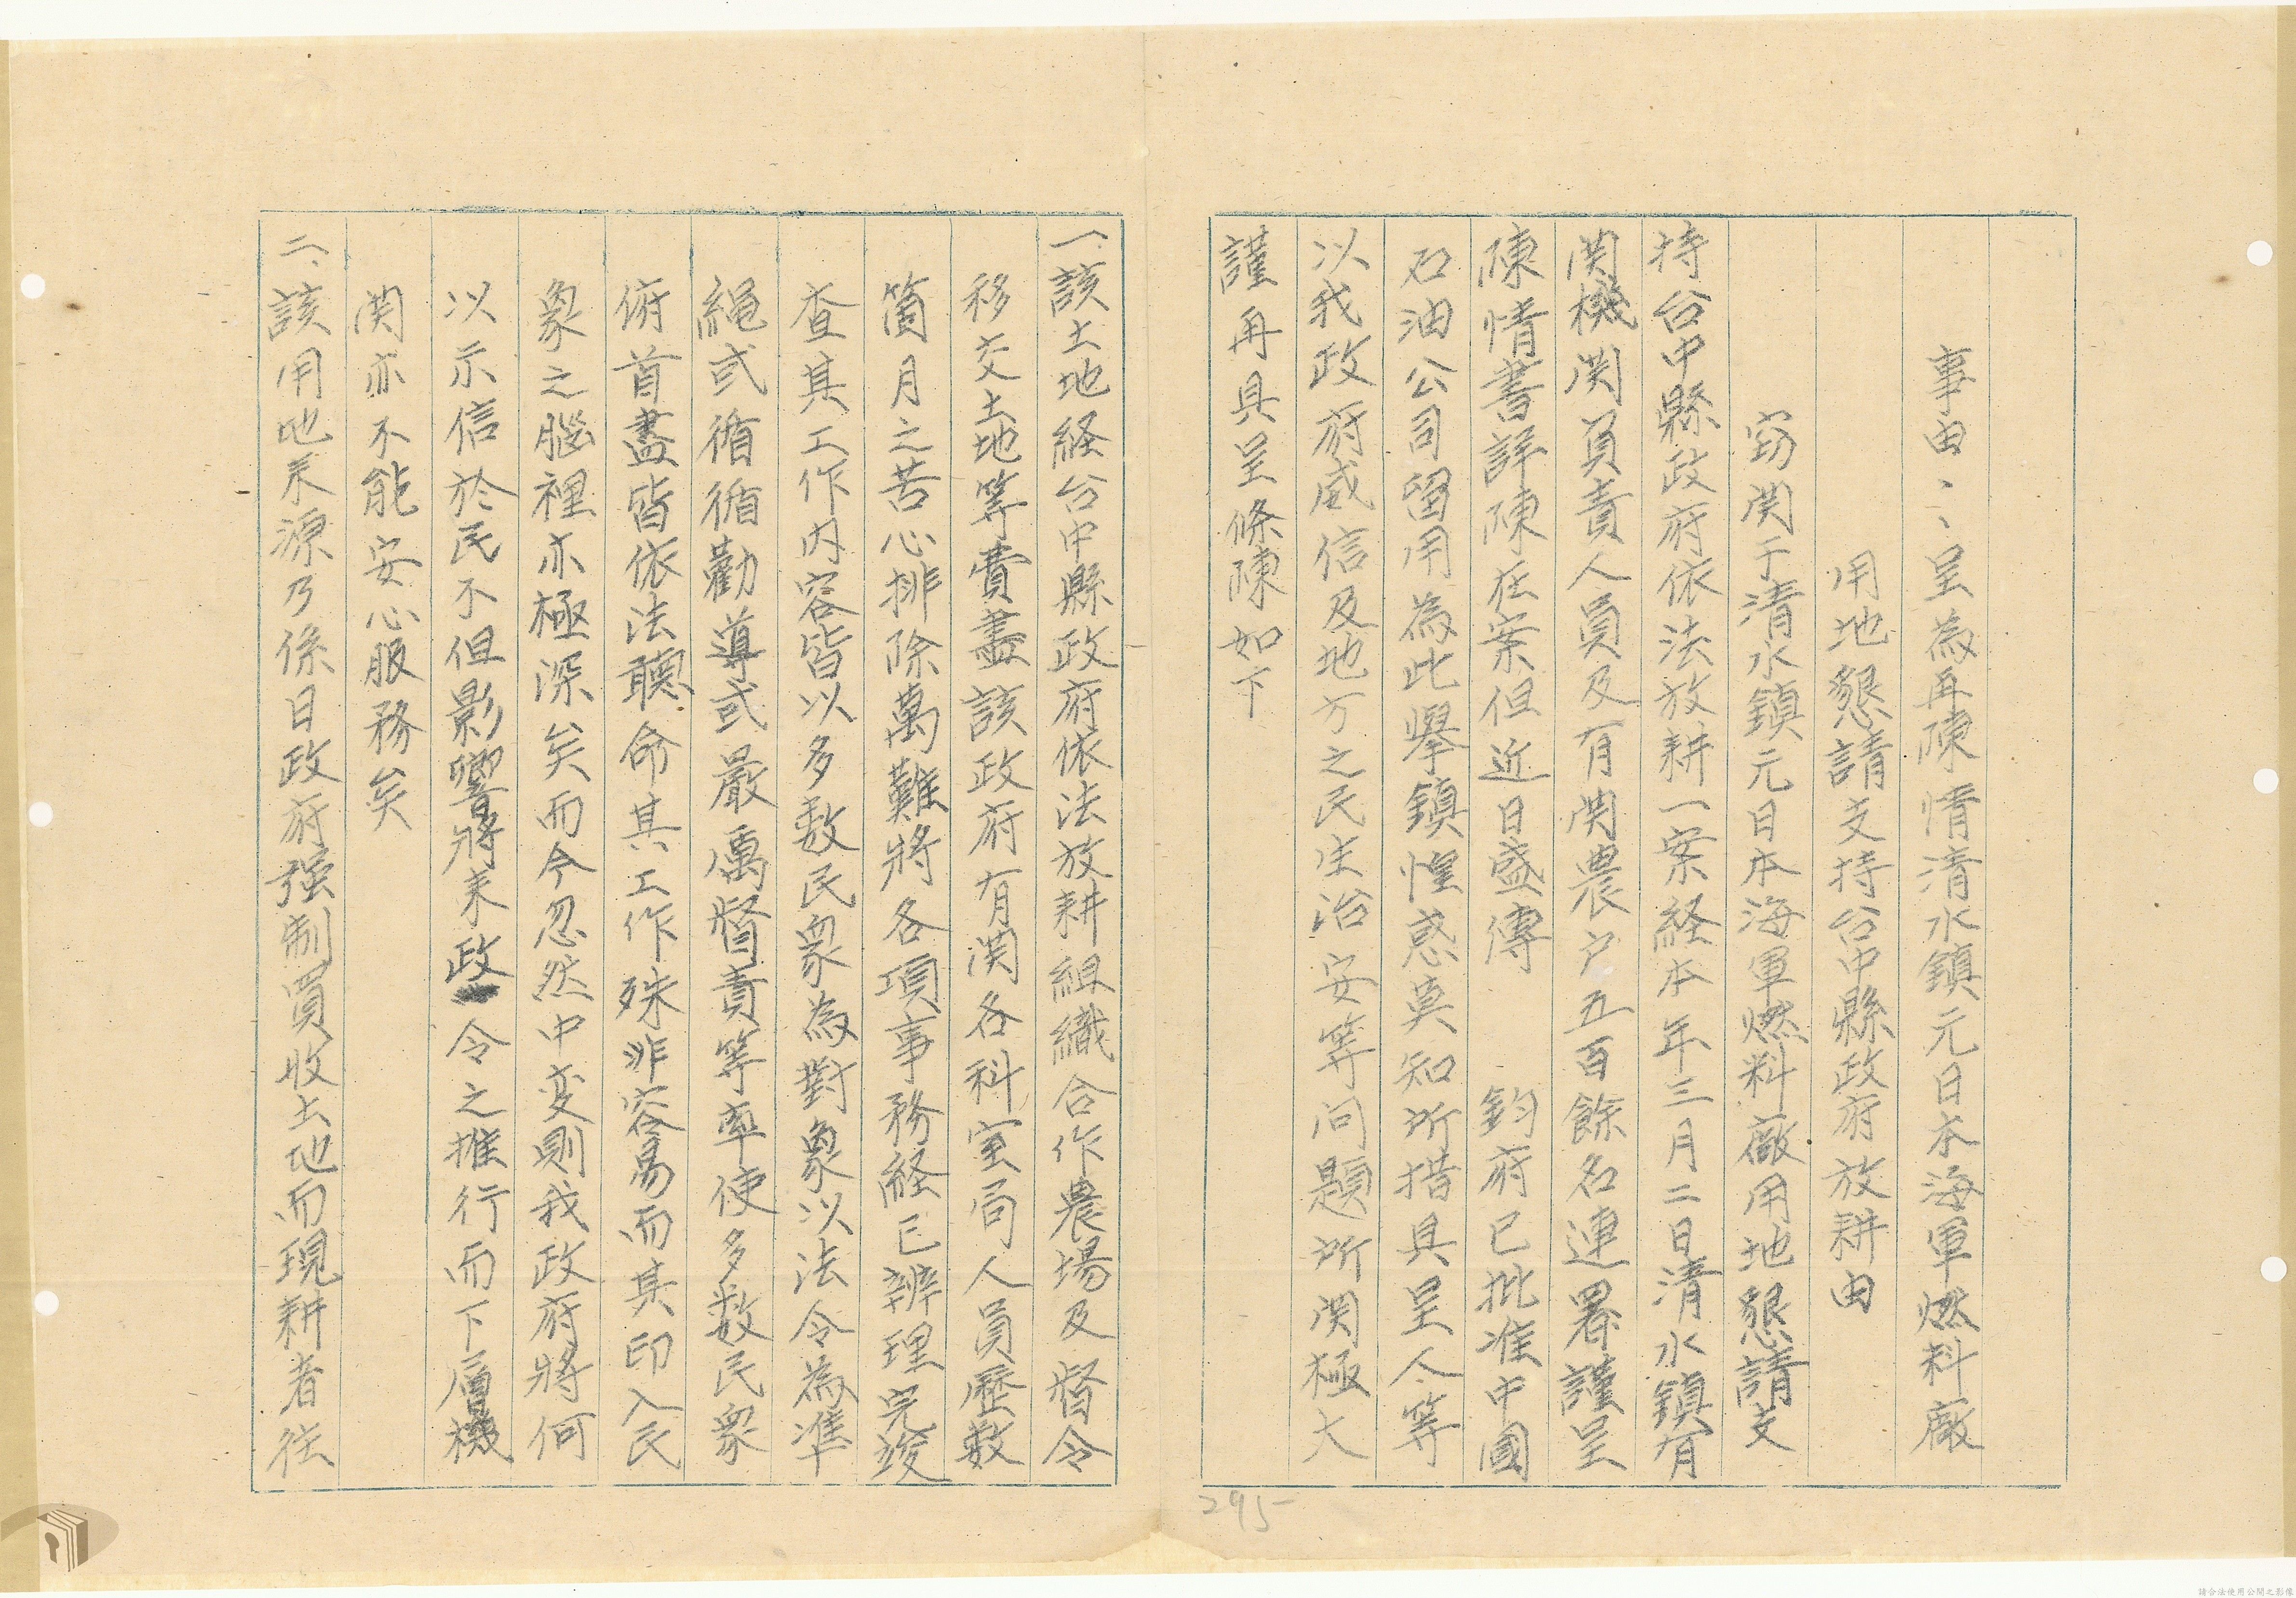 事由：：呈為再陳情清水鎮元日本海軍燃料廠
用地懇請支持台中縣政府放耕由
窃関于清水鎮元日本海軍燃料廠用地懇請支
持台中縣政府依法放耕一案経本年三月二日清水鎮有
関機関負責人員及有関農户五百餘名連署謹呈
陳情書詳陳在案但近日盛傳　鈞府已批准中國
石油公司留用為此舉鎮惶惑莫知所措具呈人等
以我政府威信及地方之民生治安等问題所関極大
謹再具呈條陳如下
一、該土地経台中縣政府依法放耕組織合作農場及督令
移交土地等費盡該政府有関各科室局人員歷数
箇月之苦心排除萬難將各項事務経已辦理完竣
查其工作内容皆以多数民衆為對象以法令為準
繩或循循勸導或嚴厲督責等率使多数民衆
俯首盡皆依法聽命其工作殊非容易而其印入民
象之腦裡亦極深矣而今忽然中变則我政府將何
以示信於民不但影響將来政令之推行而下層機
関亦不能安心服務矣
二、該用地来源乃係日政府强制買收土地而現耕者徃
295
請合法使用公開之影像